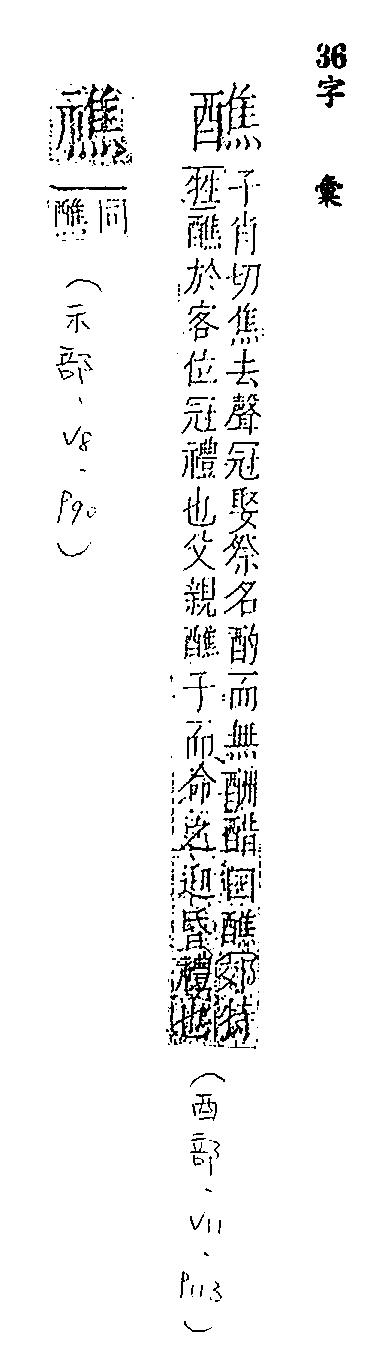 36字彙
醮
子肖切焦去聲冠娶祭名酌而無酬酢曰醮郊特
牲醮於客位冠禮也父親醮子而命之迎昏禮也
(酉部、V11、P113)
𥛲
同醮
(示部、V8、P90)